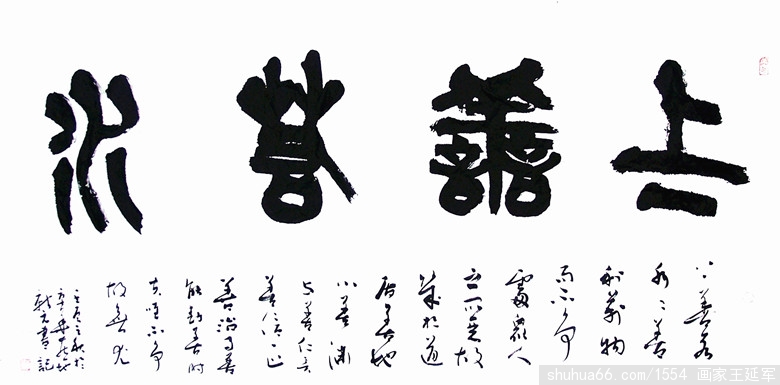 上善若水
上善若
水水善
利萬物
而不爭
處眾人
之所惡故
幾於道
居善地
心善渊
与善仁言
善信正
善治事善
能動善時
夫唯不爭
故無尤
shuhua66.com/1554 画家王延军